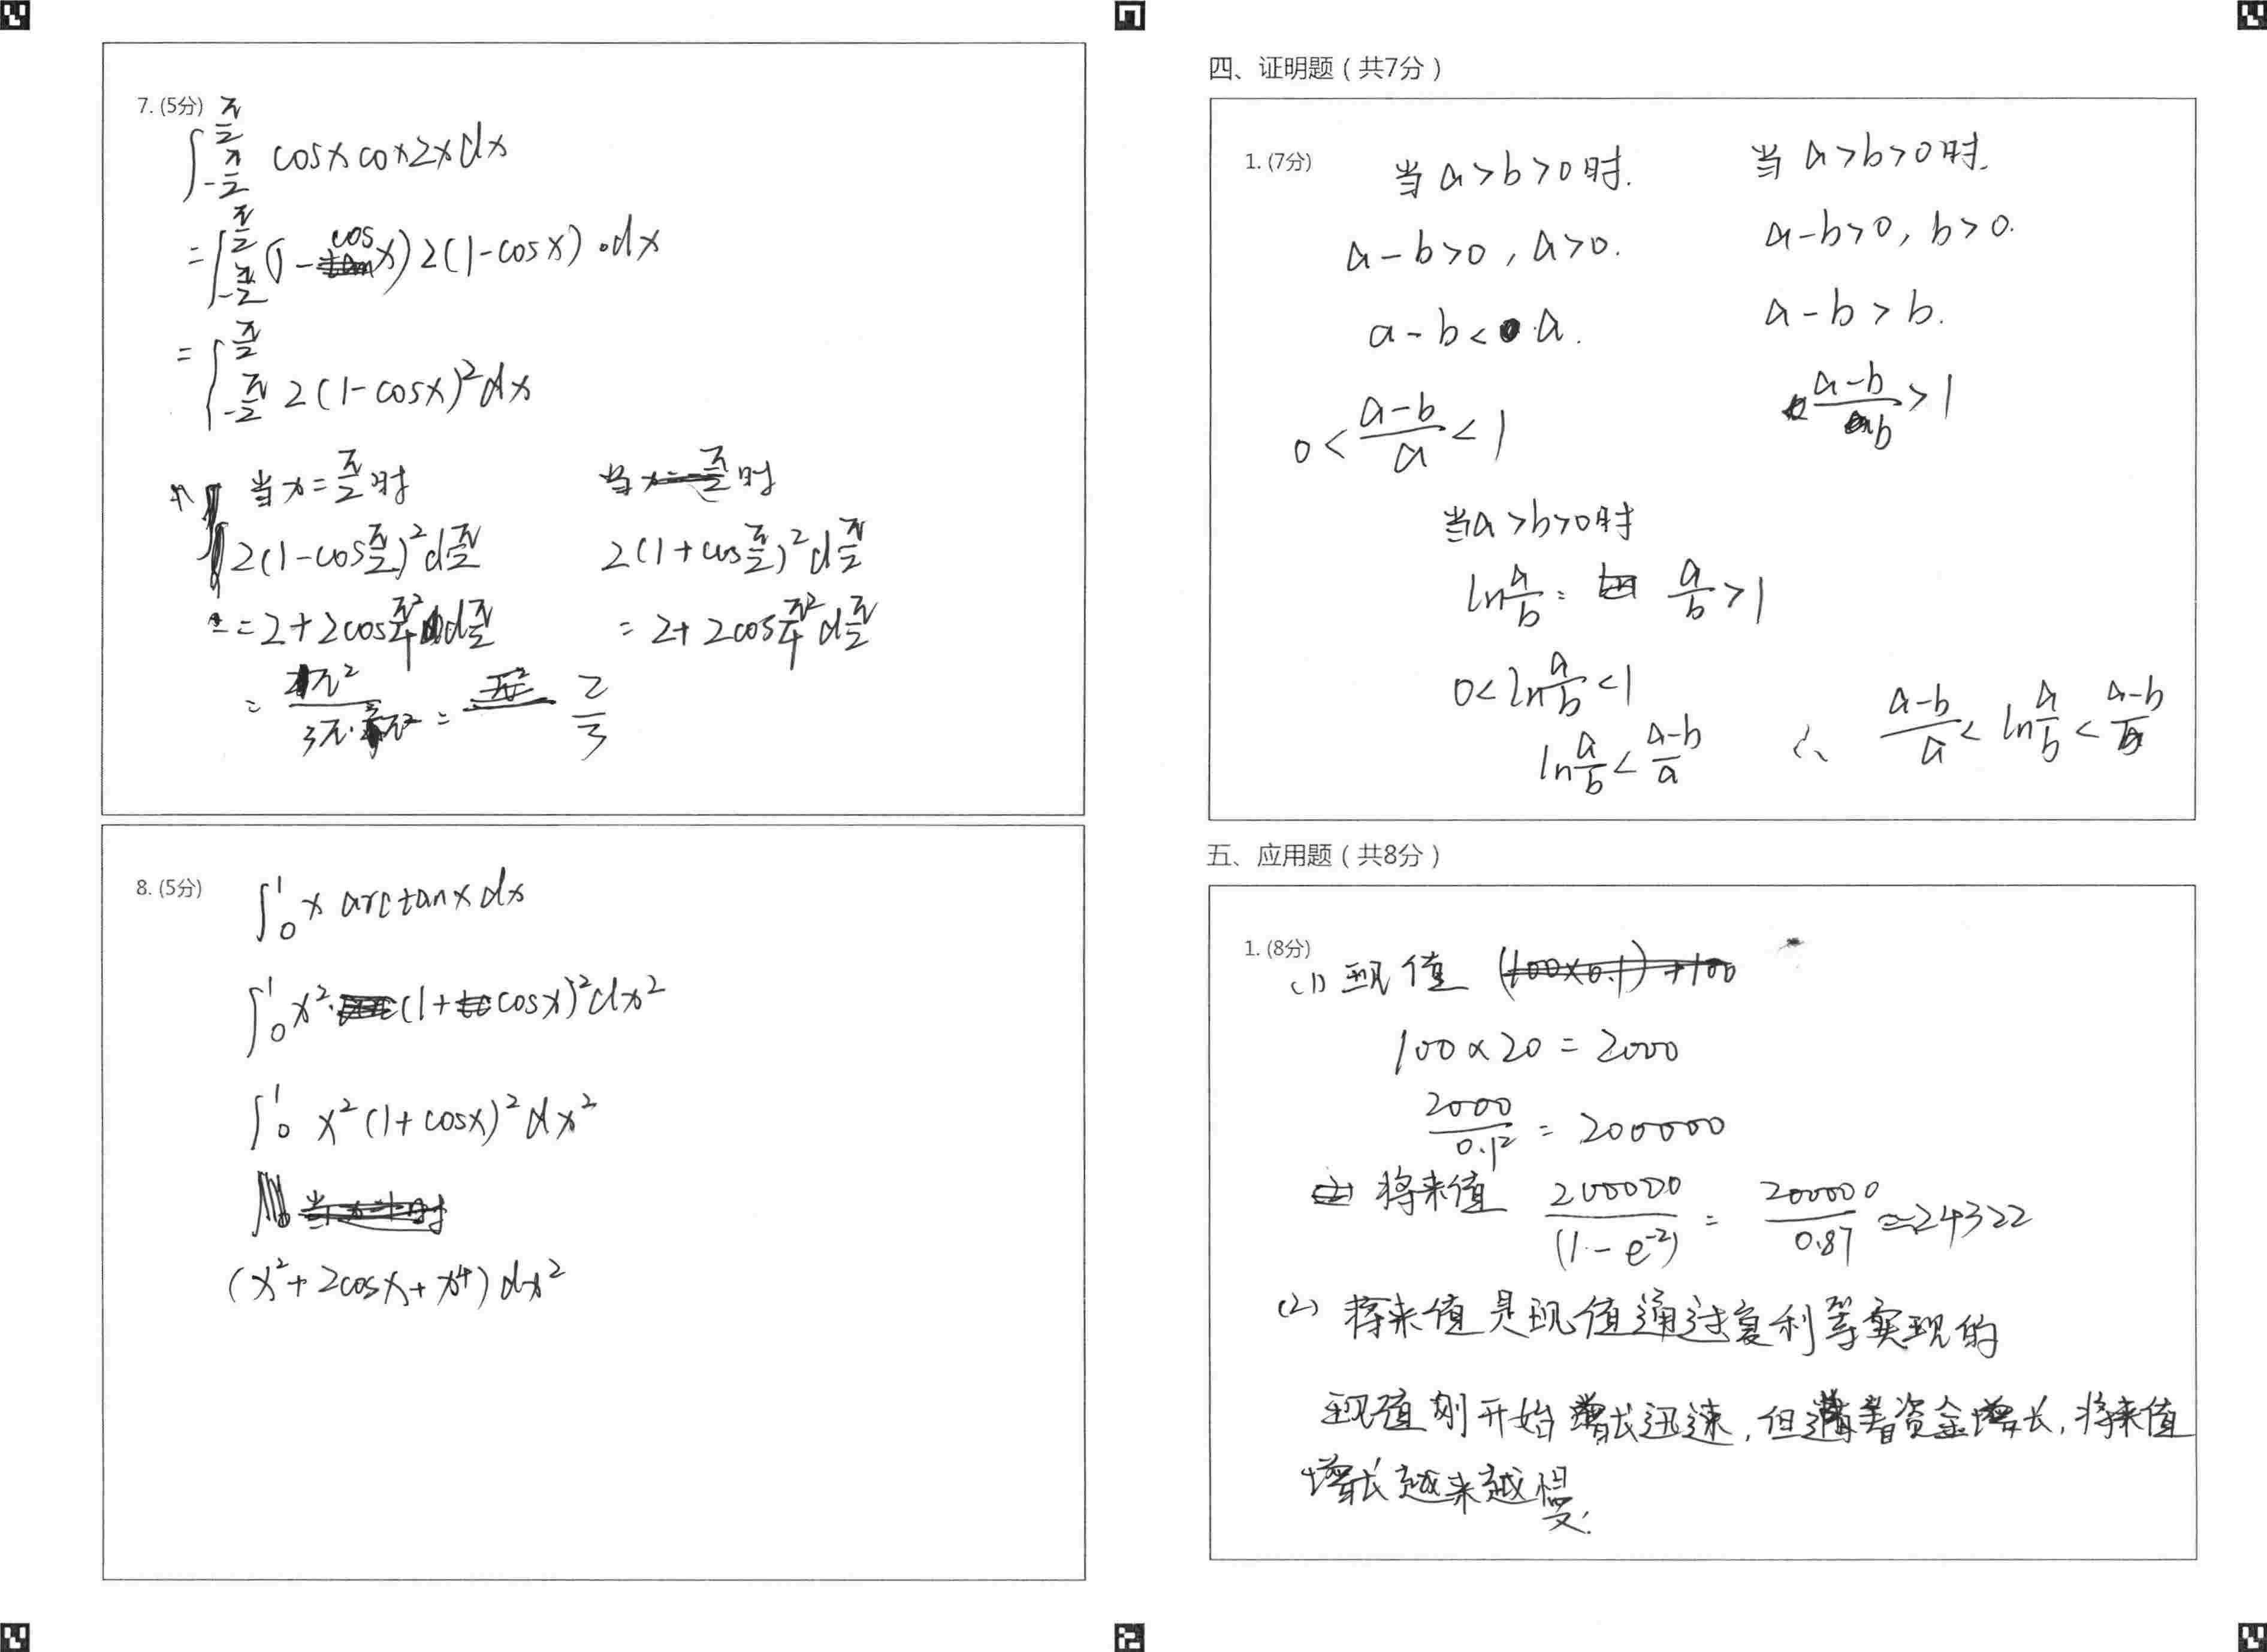 7. (5分)
∫_{-π/2}^{π/2} cosx cox2xdx
= ∫_{-π/2}^{π/2} (1-cosx)2(1-cosx)·dx
= ∫_{-π/2}^{π/2} 2(1-cosx)²dx
当x=π/2时
当x=-π/2时
2(1-cosπ/2)²dπ/2
2(1+cosπ/2)²dπ/2
=2+2cosπ²/4 dπ/2
=2+2cosπ²/4 dπ/2
= 2/3
8. (5分)
∫_0^1 x arctanxdx
∫_0^1 x²·(1+cosx)²dx²
∫_0^1 x²(1+cosx)²dx²
(x²+2cosx+x⁴)dx²
四、证明题（共7分）
1. (7分)
当a>b>0时.
a-b>0, a>0.
a-b<a.
0<(a-b)/a<1
当a>b>0时.
a-b>0, b>0.
a-b>b.
(a-b)/b>1
当a>b>0时
ln a/b: a/b>1
0<ln a/b<1
ln a/b<(a-b)/a
∴ (a-b)/a<ln a/b<(a-b)/b
五、应用题（共8分）
1. (8分)
(1) 现值 (100×0.1)+100
100×20=2000
2000/0.1²=200000
将来值 200000/(1-e⁻²)=200000/0.87≈24322
(2) 将来值是现值通过复利等实现的
现值刚开始增长迅速,但随着资金增长,将来值
增长越来越慢.